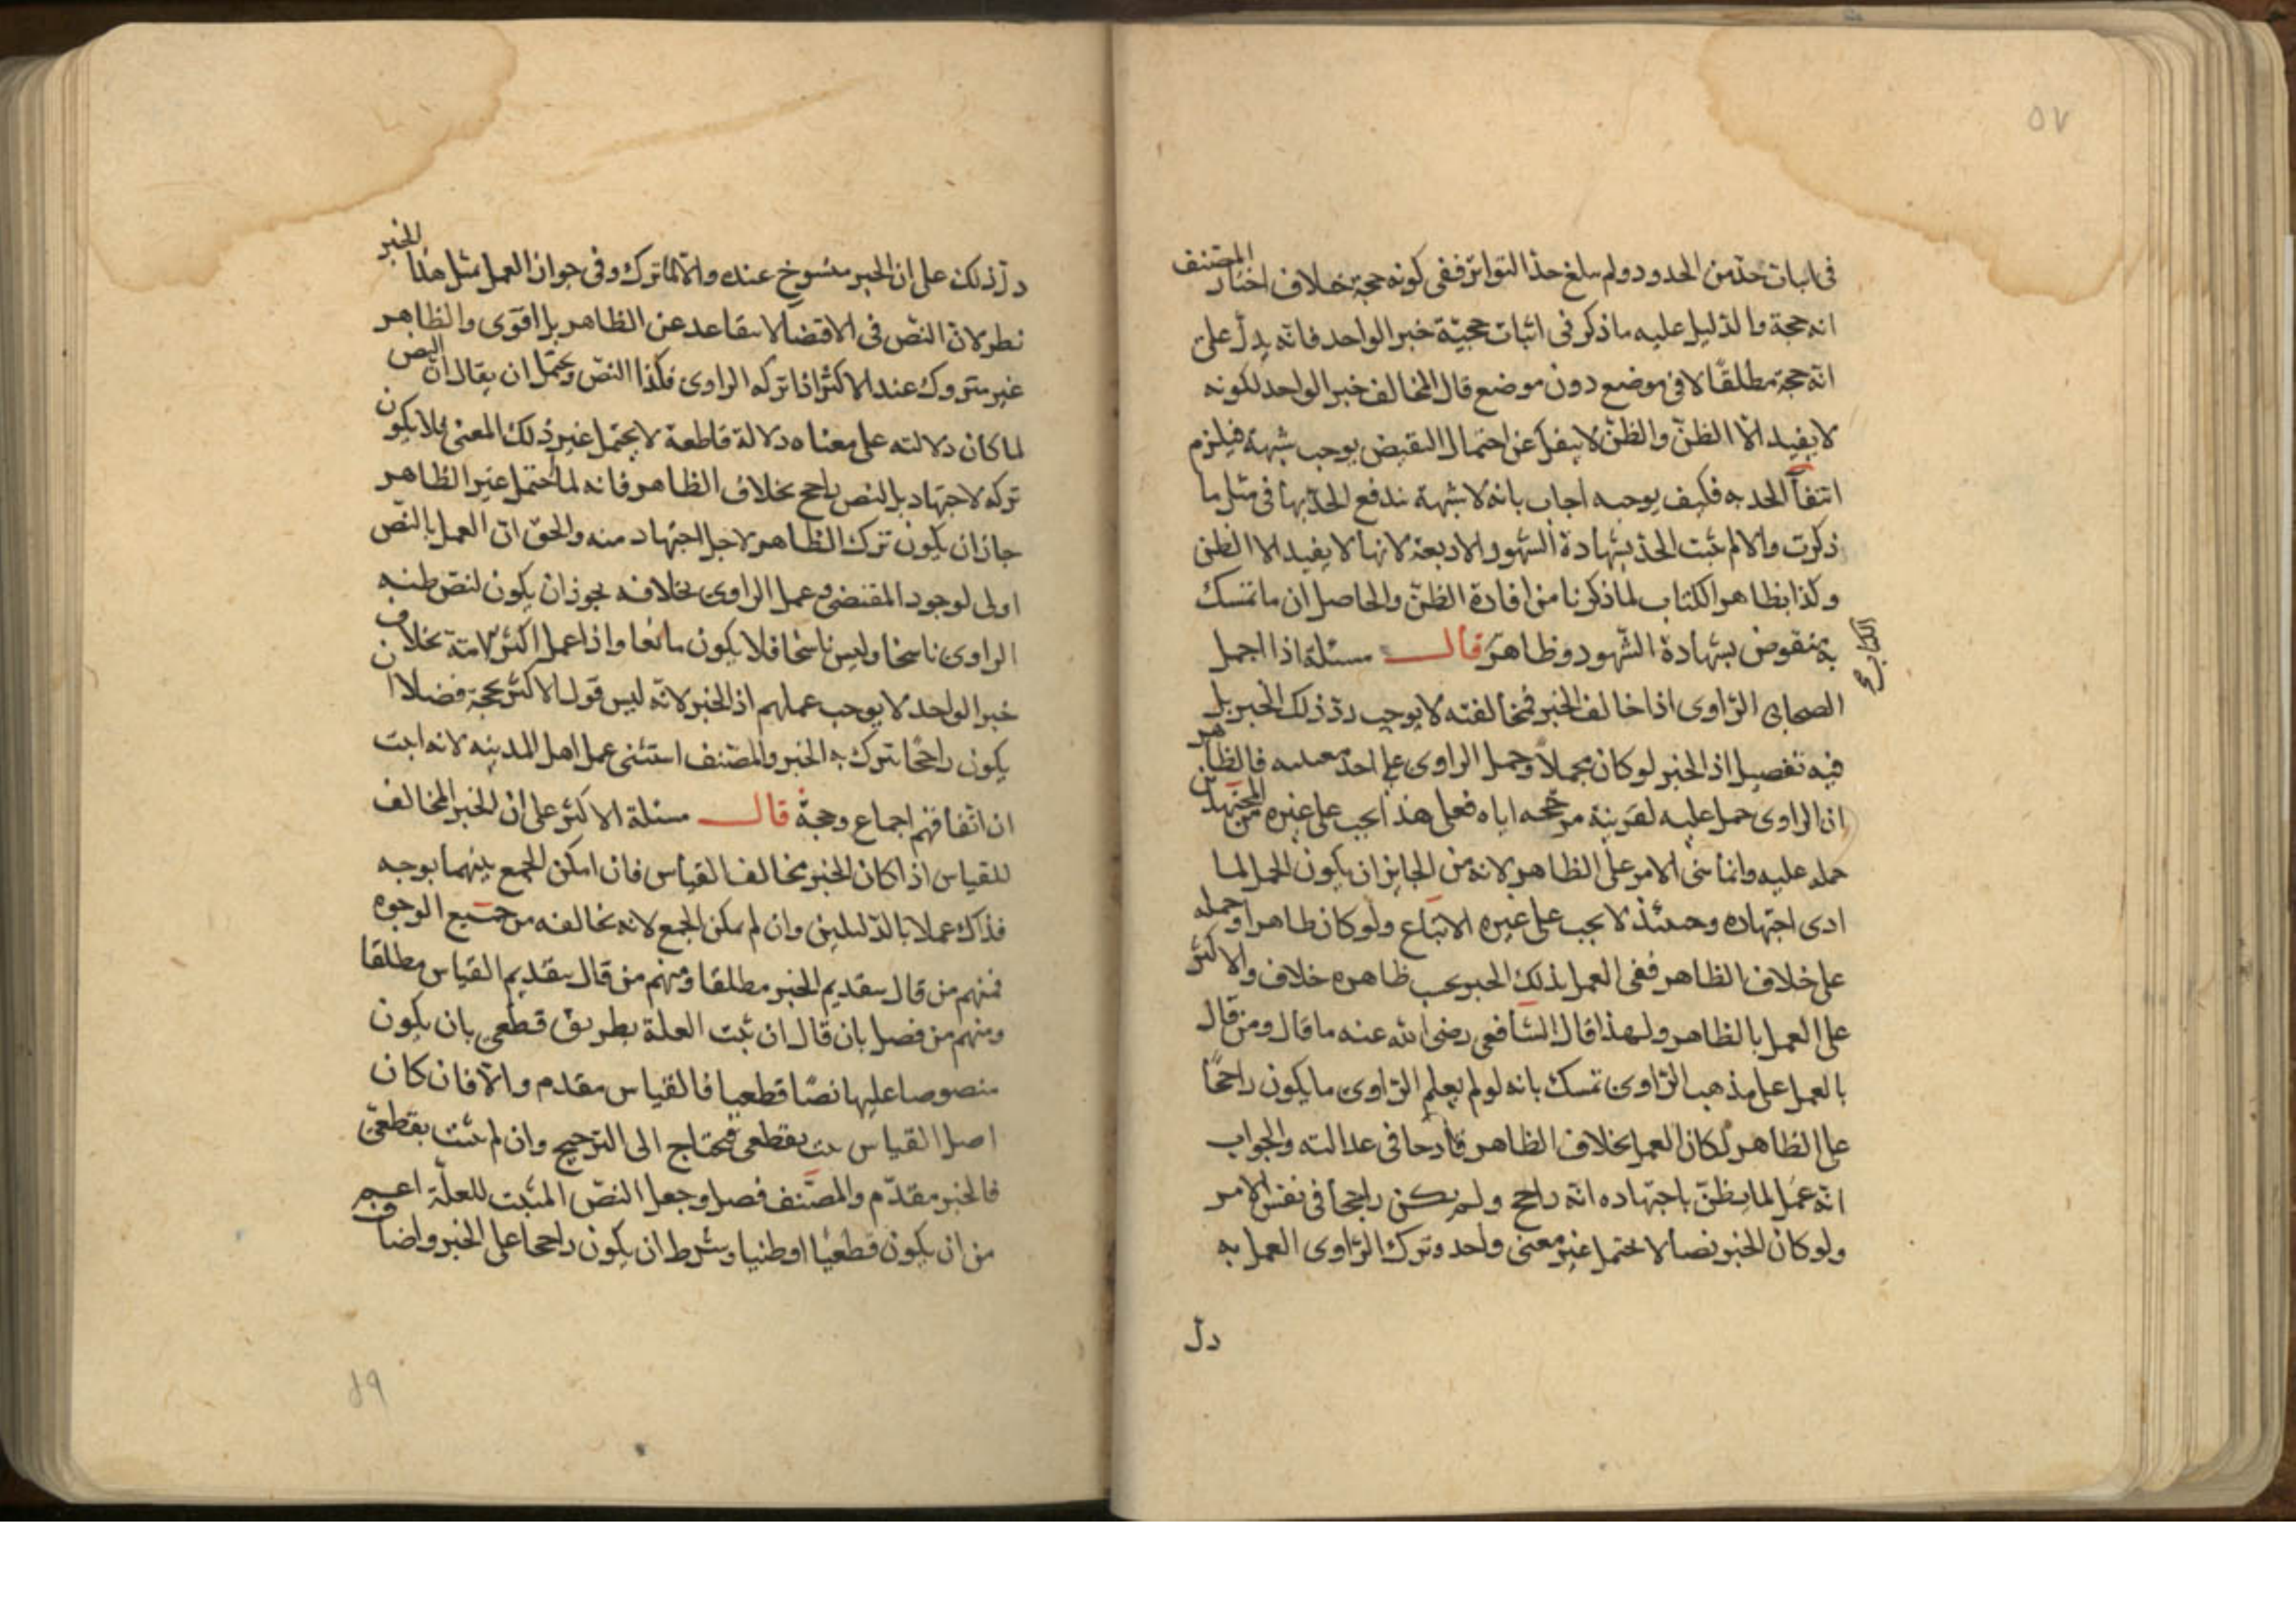 ٥٧
فى اثبات حدّ من الحدود ولم يبلغ حدّ التواتر ففى كونه حجة خلاف اختار المصنف
انه حجة والدليل عليه ما ذكر فى اثبات حجيّة خبر الواحد فانّه يدلّ على
انّه حجة مطلقًا لا فى موضع دون موضع قال المخالف خبر الواحد لكونه
لا يفيد الّا الظنّ والظنّ لا ينفك عن احتمال النقيض يوجب شبهة فيلزم
انتفآ الحد به فكيف يوجبه اجاب بانه لا شبهة تدفع الحدّ بها فى مثل ما
ذكرت والا لم يثبت الحدّ بشهادة الشهود الاربعة لانها لا يفيد الا الظن
وكذا بظاهر الكتاب لما ذكرنا من افادة الظنّ والحاصل ان ما تمسك
به منقوض بشهادة الشّهود وظاهر قال مسئلة اذا اجمل
الكتاب صح
الصحابى الرّاوى اذا خالف الخبر فمخالفته لا يوجب ردّ ذلك الخبر بل
فيه تفصيل اذ الخبر لو كان مجملاً وحمل الراوى على احد معنييه فالظاهر
ان الراوى حمل عليه لقرينة مرجّحه اياه فعلى هذا يجب على غيره من المجتهدين
حمله عليه وانما بنى الامر على الظاهر لانه من الجايز ان يكون الحمل لما
ادى اجتهاده وحينئذ لا يجب على غيره الاتباع ولو كان ظاهرا وحمله
على خلاف الظاهر ففى العمل بذلك الخبر بحسب ظاهره خلاف والاكثر
على العمل بالظاهر ولهذا قال الشافعى رضى الله عنه ما قال ومن قال
بالعمل على مذهب الرّاوى تمسك بانه لو لم يعلم الرّاوى ما يكون راجحًا
على الظاهر لكان العمل بخلاف الظاهر قادحا فى عدالته والجواب
انّه عمل لما يظنّ باجتهاده انّه راجح ولم يكن راجحا فى نفس الامر
ولو كان الخبر نصا لا يحتمل غير معنى واحد وترك الرّاوى العمل به
دلّ
دلّ ذلك على ان الخبر منسوخ عنده والّا لما ترك وفى جواز العمل بمثل هذا الخبر
نظر لانّ النصّ فى الاقتضا لا يتقاعد عن الظاهر بل اقوى والظاهر
غير متروك عند الاكثر اذا تركه الراوى فكذا النصّ ويحتمل ان يقال انّ النص
لما كان دلالته على معناه دلالة قاطعة لا يحتمل غير ذلك المعنى فلا يكون
تركه لاجتهاد بل لنص راجح بخلاف الظاهر فانه لما احتمل غير الظاهر
جاز ان يكون ترك الظاهر لاجل اجتهاد منه والحقّ انّ العمل بالنّص
اولى لوجود المقتضى وعمل الراوى بخلافه يجوز ان يكون لنصّ ظنه
الراوى ناسخا وليس ناسخا فلا يكون مانعا واذا عمل اكثر الامّة بخلاف
خبر الواحد لا يوجب عملهم اذ الخبر لانّه ليس قول الاكثر بحجة فضلا ان
يكون راجحًا يترك به الخبر والمصّنف استثنى عمل اهل المدينه لانه اثبت
ان اتفاقهم اجماع وحجة قال مسئلة الاكثر على ان الخبر المخالف
للقياس اذا كان الخبر مخالفا لقياس فان امكن الجمع بينهما بوجه
فذاك عملا بالدّليلين وان لم يمكن الجمع لانه يخالفه من جميع الوجوه
فمنهم من قال بتقديم الخبر مطلقا ومنهم من قال بتقديم القياس مطلقا
ومنهم من فصل بان قال ان ثبت العلة بطريق قطعى بان يكون
منصوصا عليها نصًا قطعيا فالقياس مقدم والّا فان كان
اصل القياس ثبت بقطعى فيحتاج الى الترجيح وان لم يثبت بقطعىّ
فالخبر مقدّم والمصّنف فصل وجعل النصّ المثبت للعلّة اعم
من ان يكون قطعيّا او ظنيا وشرط ان يكون راجحا على الخبر واضاف